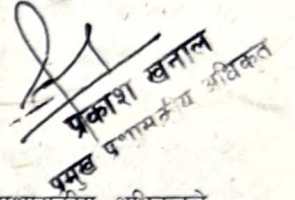 प्रकाश खनाल
प्रमुख प्रशासकीय अधिकृत